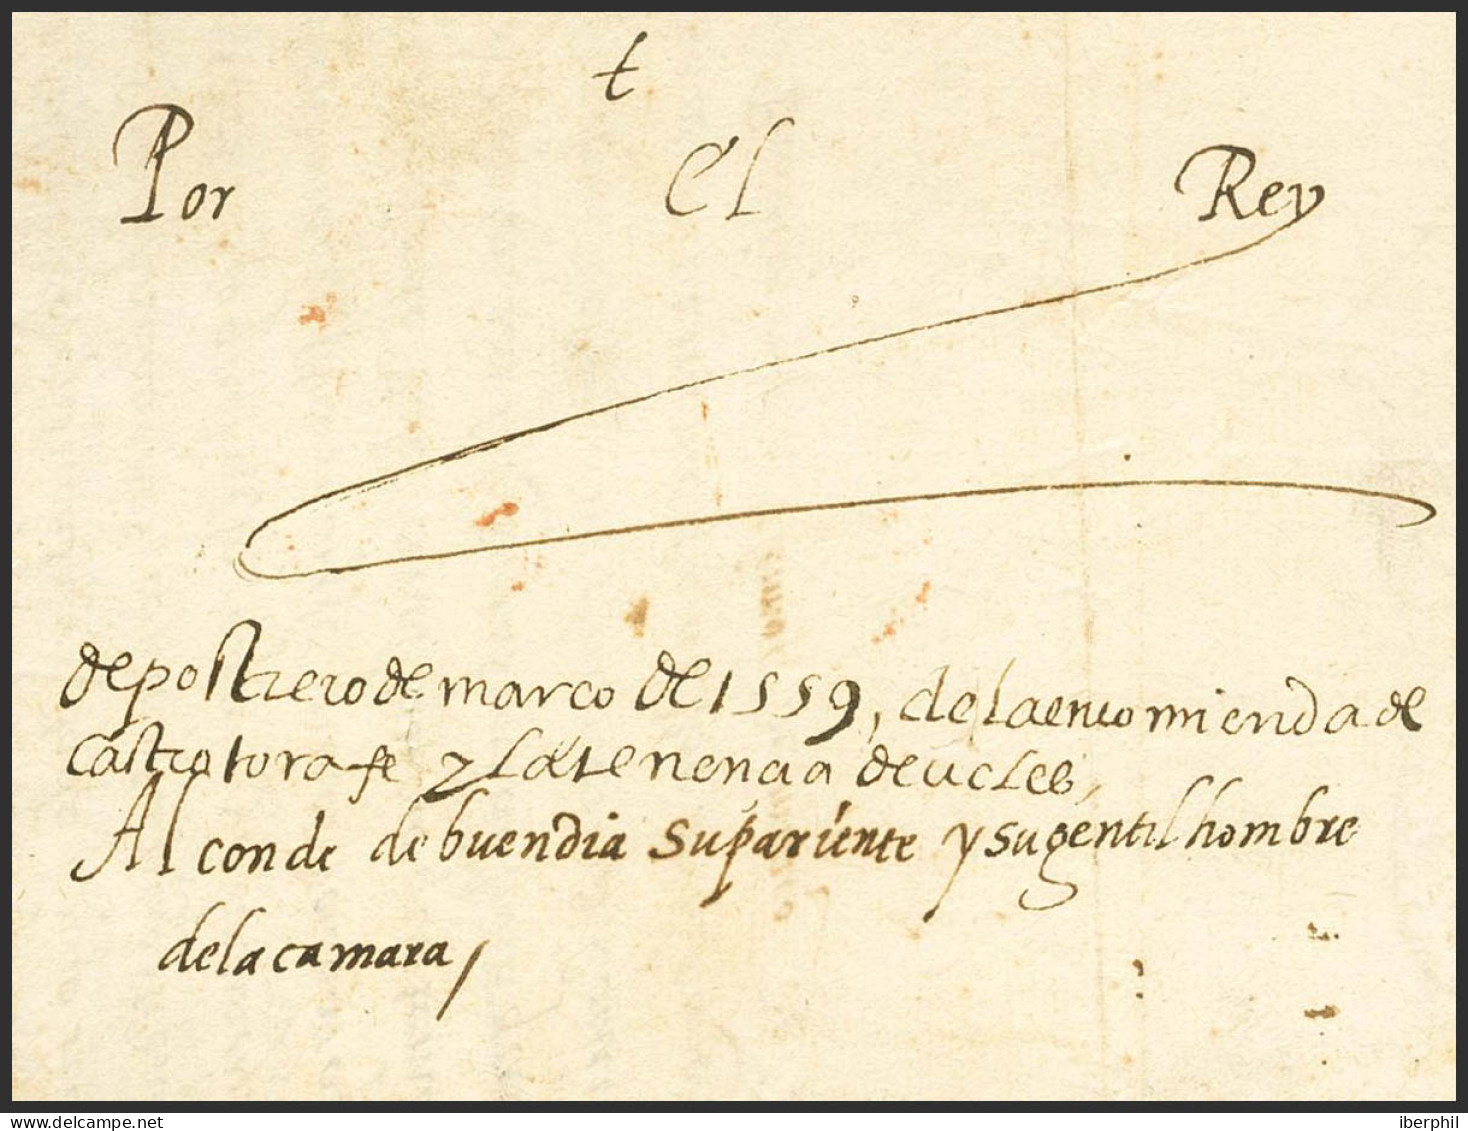 t
Por El Rey
de postrero de março de 1559, de la encomienda de
castrotorafe y la tenencia de ucles,
Al conde de buendia su pariente y su gentilhombre
de la camara,
delcampe.net
iberphil